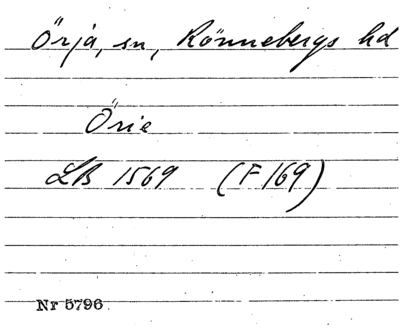 Örja, sn, Rönnebergs hd
Örie
LB 1569 (F169)
Nr 5796